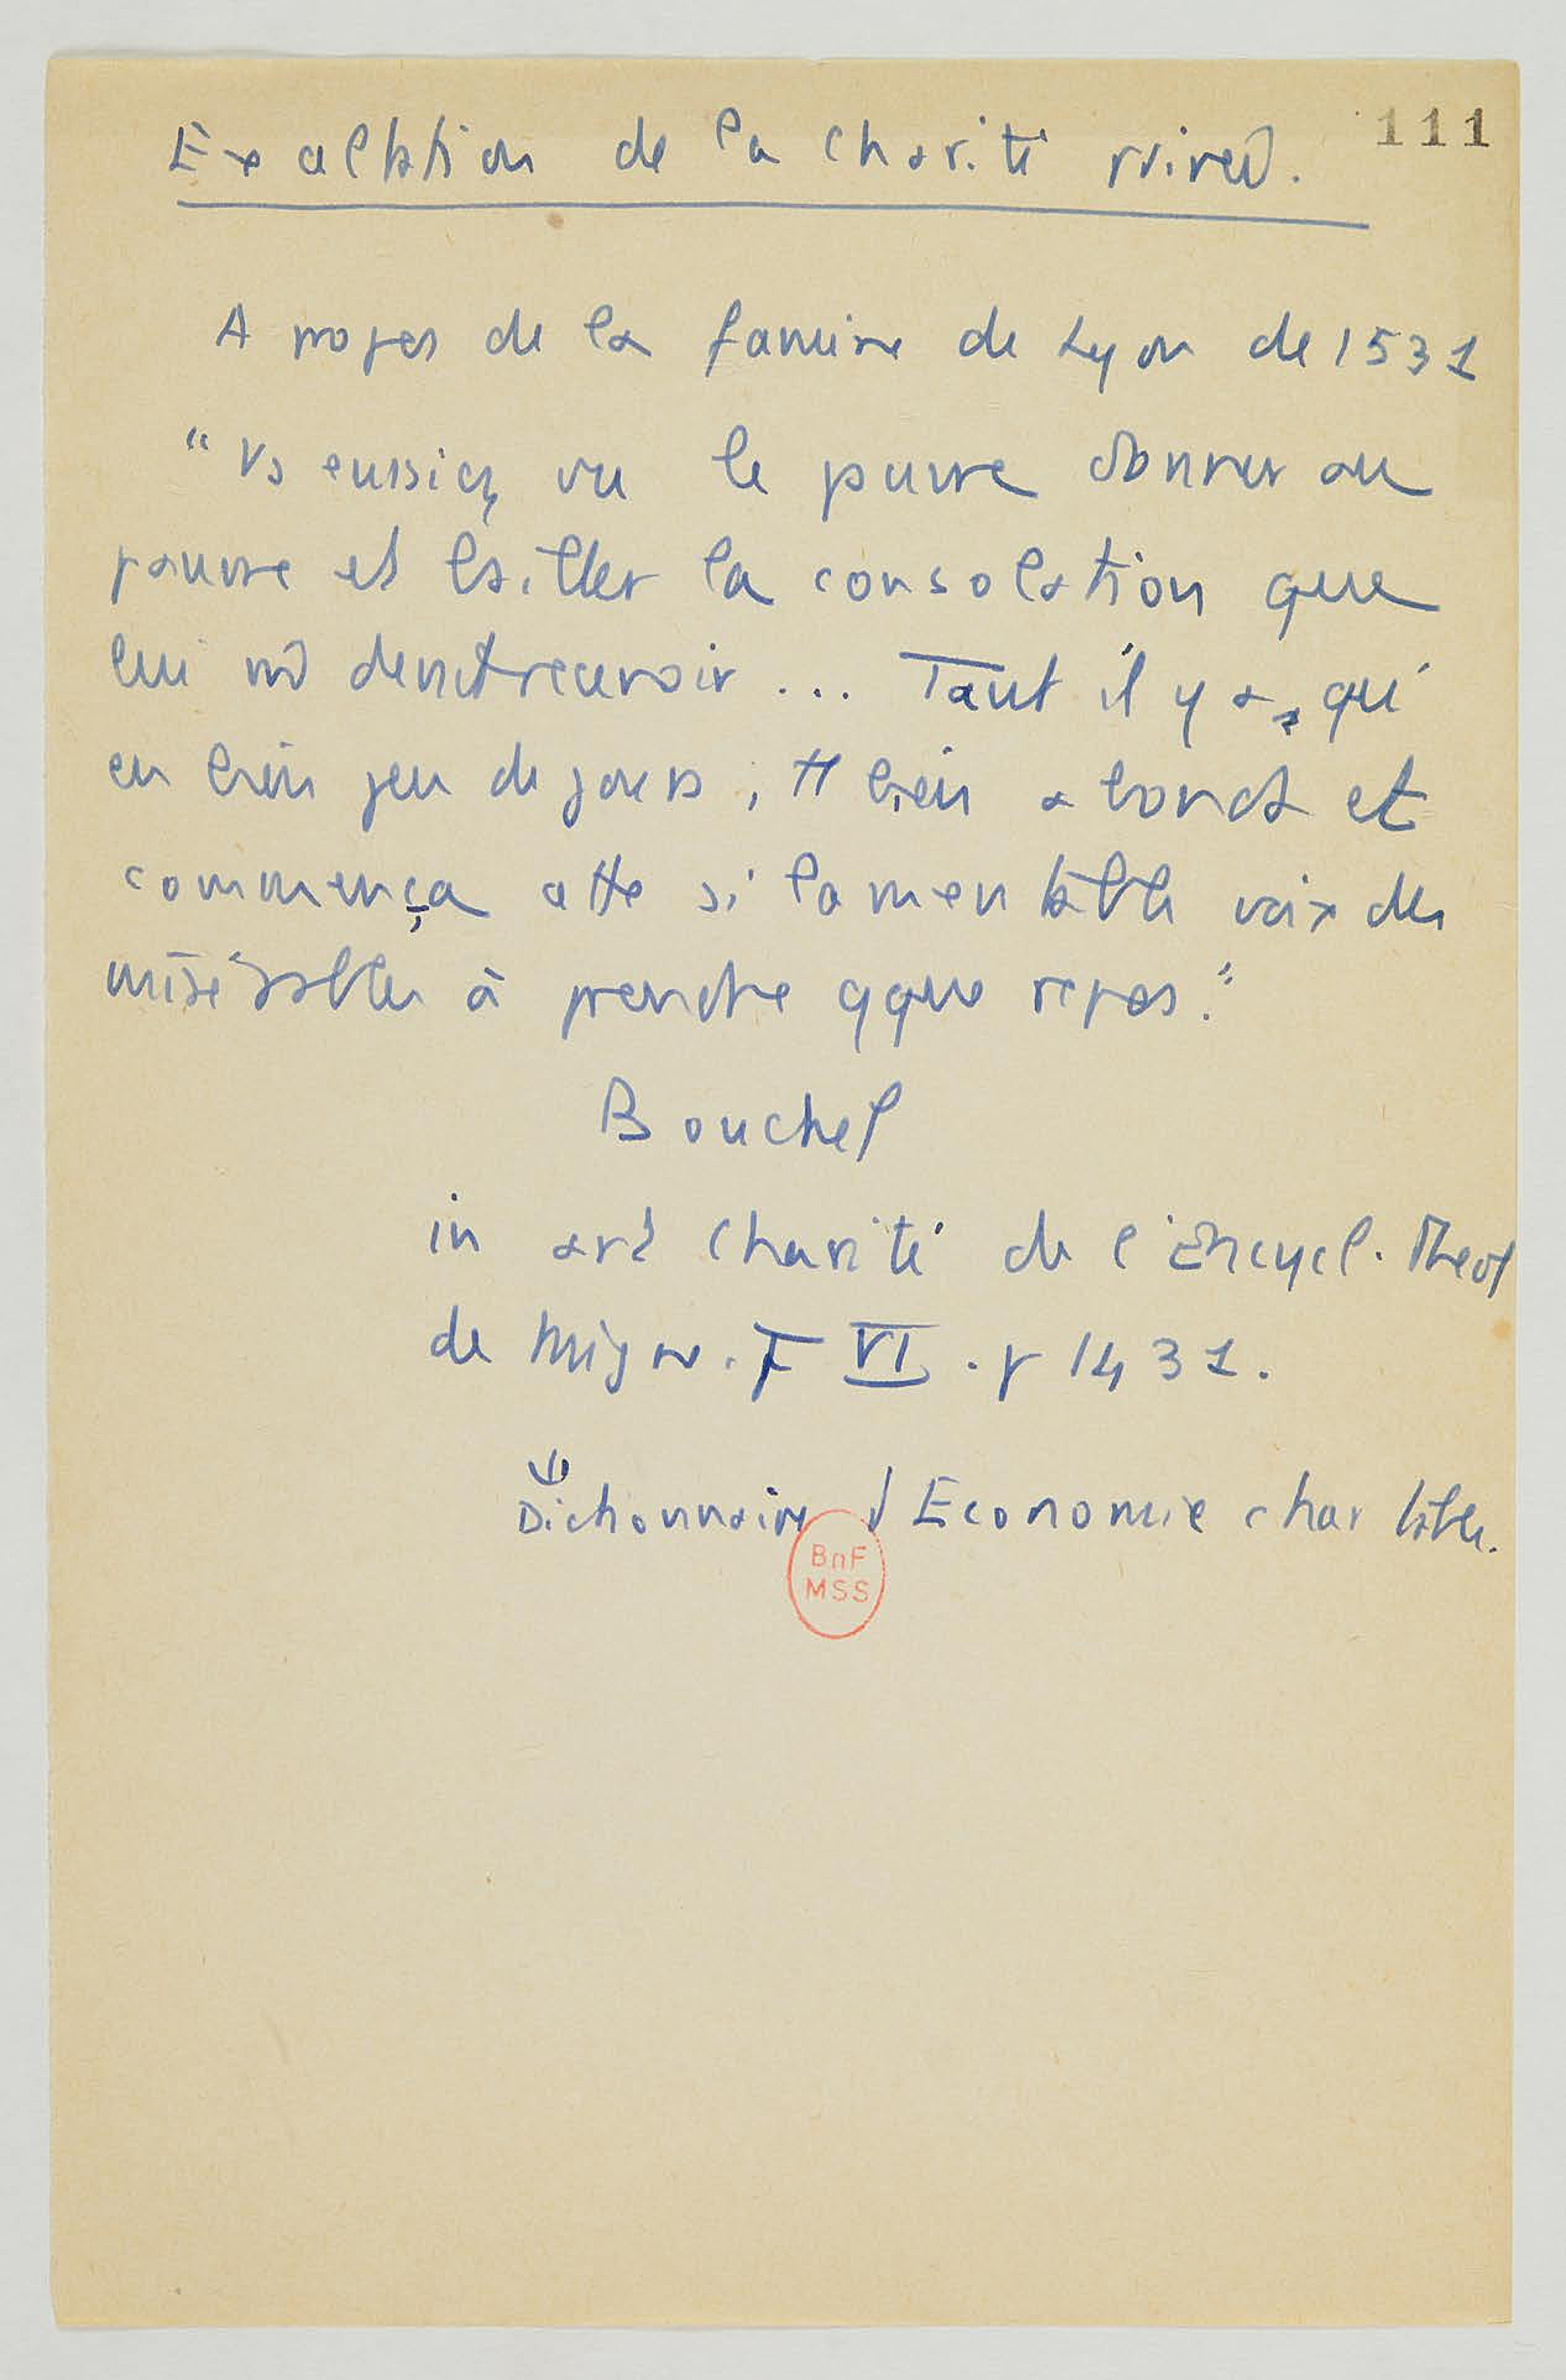 111
Exaltation de la charité privée.
A propos de la famine de Lyon de 1531
"Vs eussiez vu le pauvre donner au
pauvre et bailler la consolation que
lui mê devait recevoir ... Tant il y a, qu'
en bien peu de jours, tt bien abonda et
commença cette si lamentable voix des
misérables à prendre qque repos."
Bouchel
in art Charité de l'Encycl. Theol
de Migne. T VI. p 1431.
Dictionnaire d'Economie charitable.
BnF
MSS